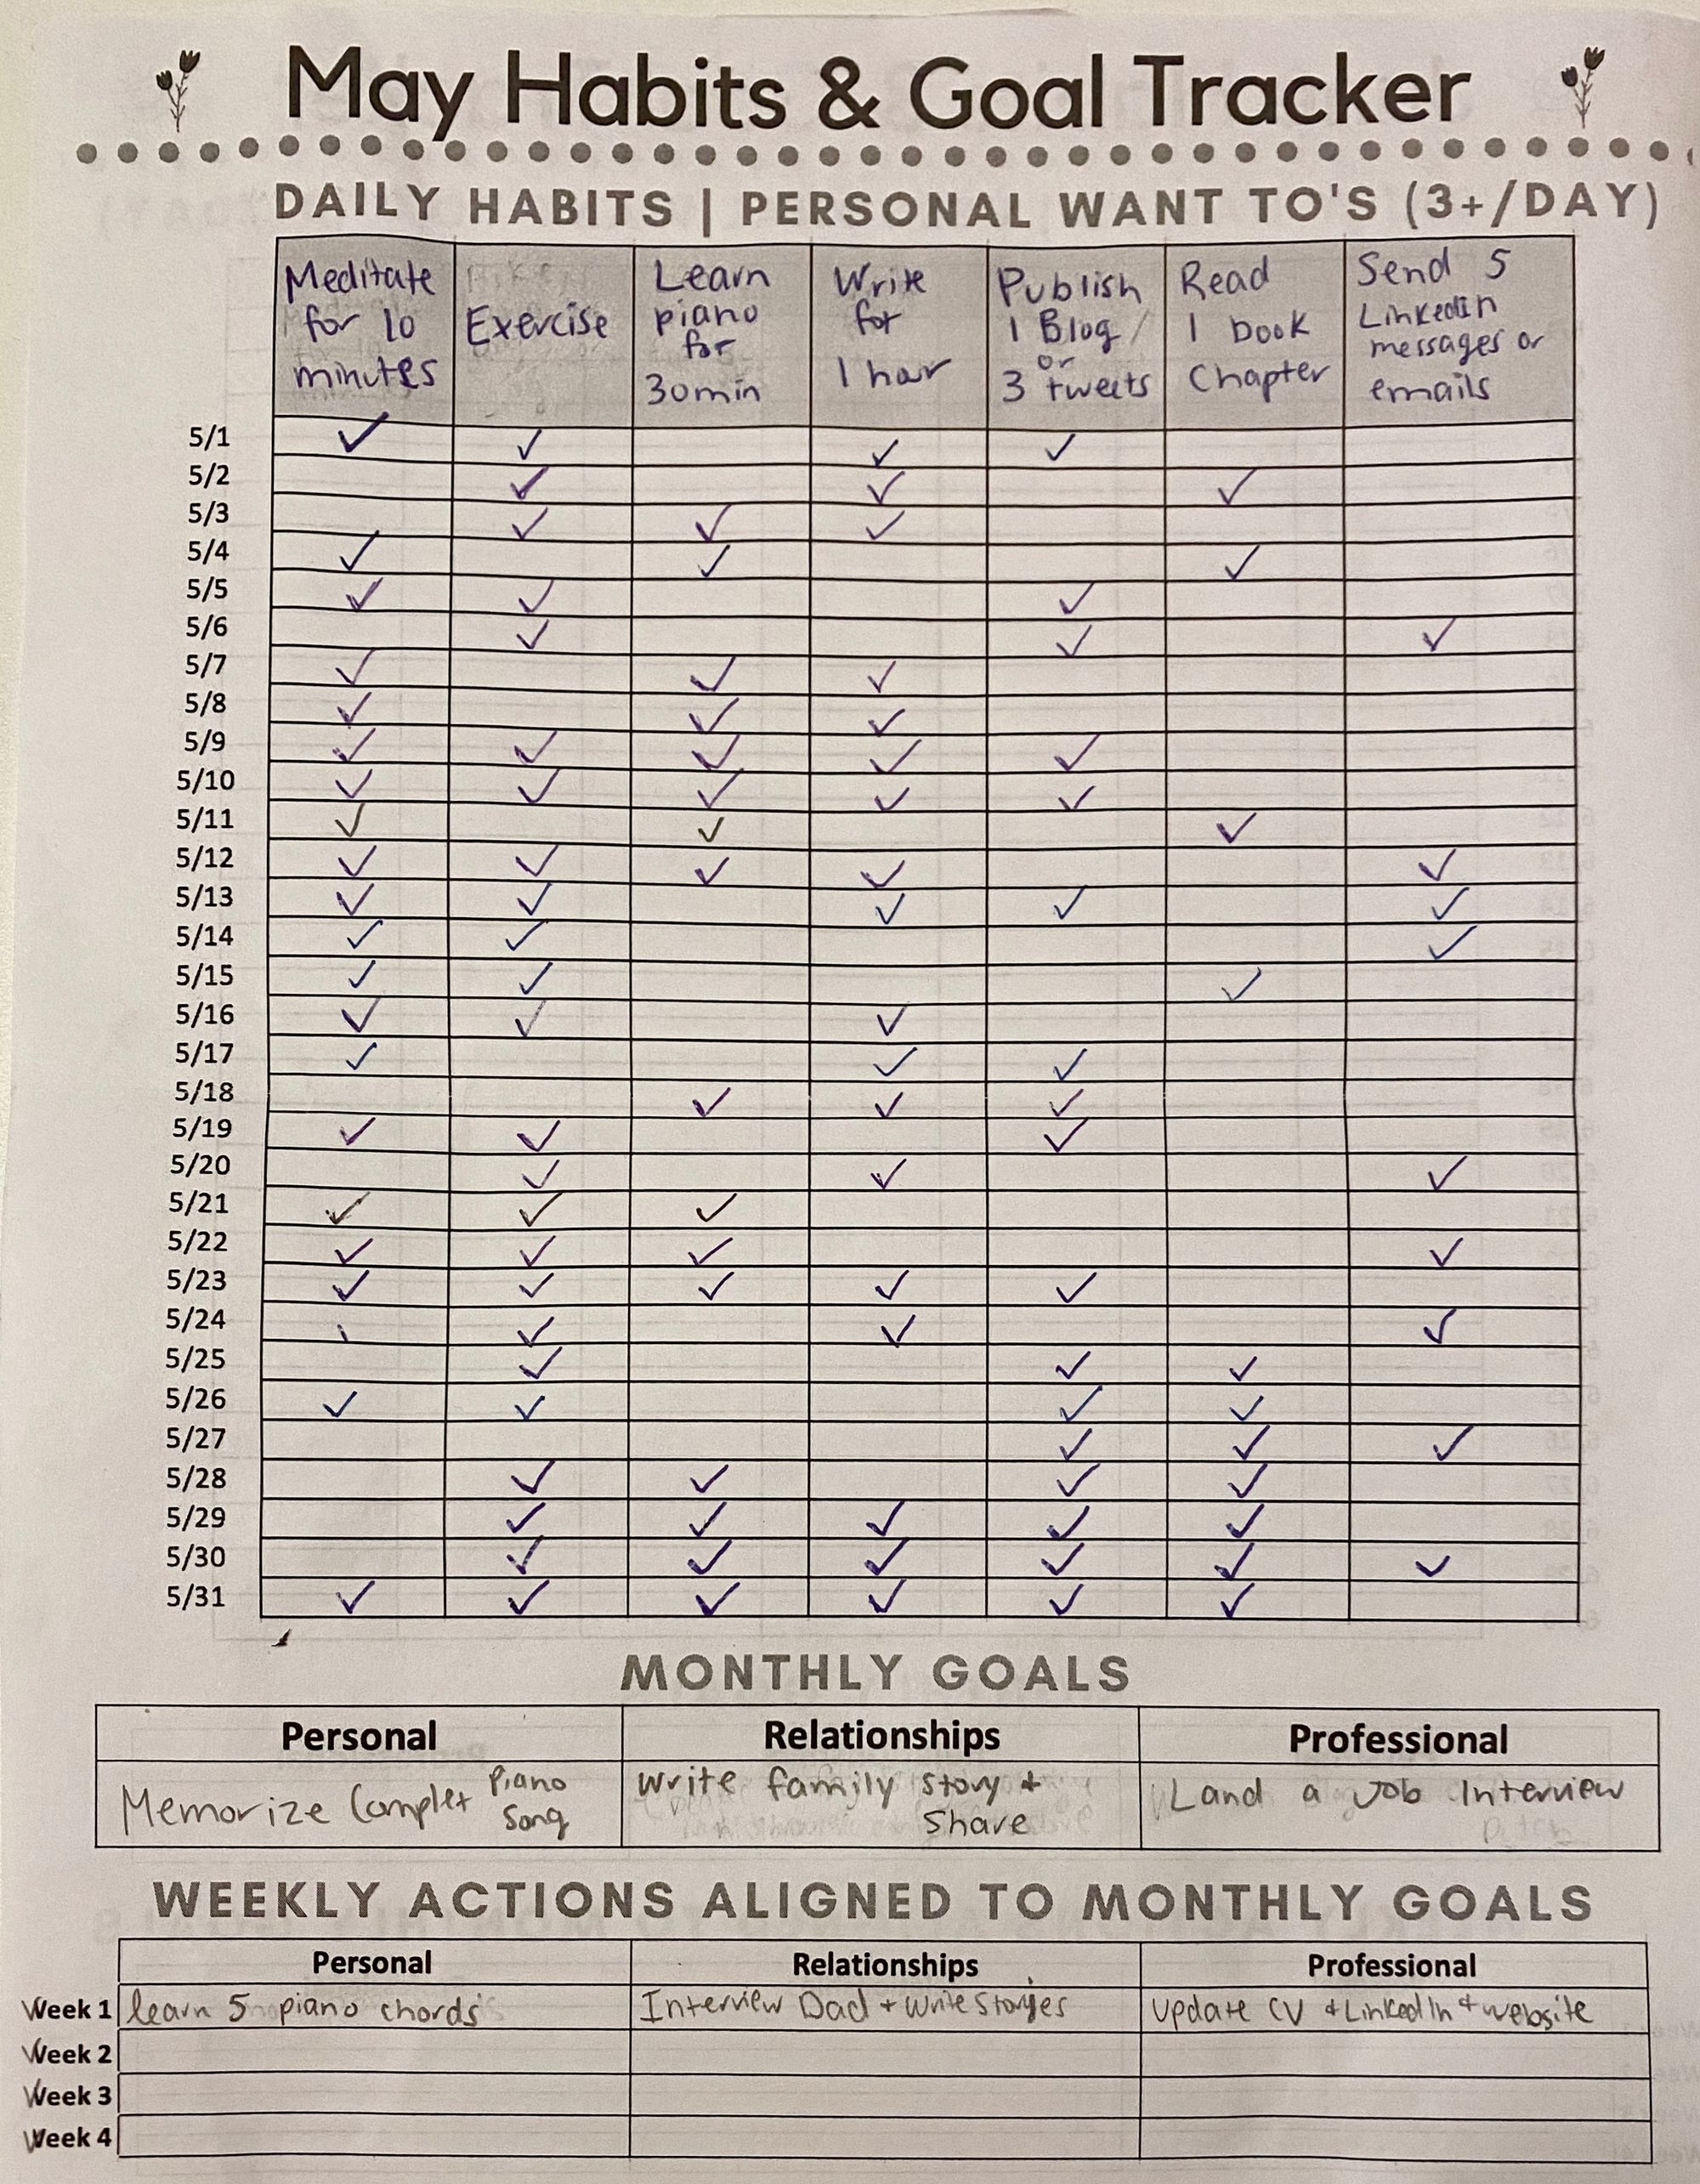 May Habits & Goal Tracker
DAILY HABITS | PERSONAL WANT TO'S (3+/DAY)
Meditate for 10 minutes
Exercise
Learn piano for 30min
Write for 1 hour
Publish 1 Blog/ or 3 tweets
Read 1 book Chapter
Send 5 LinkedIn messages or emails
5/1 ✓ ✓ ✓ ✓
5/2 ✓ ✓ ✓
5/3 ✓ ✓ ✓
5/4 ✓ ✓ ✓
5/5 ✓ ✓ ✓
5/6 ✓ ✓ ✓
5/7 ✓ ✓ ✓
5/8 ✓ ✓ ✓
5/9 ✓ ✓ ✓ ✓ ✓
5/10 ✓ ✓ ✓ ✓ ✓
5/11 ✓ ✓ ✓
5/12 ✓ ✓ ✓ ✓ ✓
5/13 ✓ ✓ ✓ ✓ ✓
5/14 ✓ ✓ ✓
5/15 ✓ ✓ ✓
5/16 ✓ ✓ ✓
5/17 ✓ ✓ ✓
5/18 ✓ ✓ ✓
5/19 ✓ ✓ ✓
5/20 ✓ ✓ ✓
5/21 ✓ ✓ ✓
5/22 ✓ ✓ ✓ ✓
5/23 ✓ ✓ ✓ ✓ ✓
5/24 ✓ ✓ ✓
5/25 ✓ ✓ ✓
5/26 ✓ ✓ ✓ ✓
5/27 ✓ ✓ ✓
5/28 ✓ ✓ ✓ ✓
5/29 ✓ ✓ ✓ ✓ ✓
5/30 ✓ ✓ ✓ ✓ ✓ ✓
5/31 ✓ ✓ ✓ ✓ ✓ ✓
MONTHLY GOALS
Personal Relationships Professional
Memorize Complet Piano Song
Write family story + Share
Land a Job Interview
WEEKLY ACTIONS ALIGNED TO MONTHLY GOALS
Personal Relationships Professional
Week 1 learn 5 piano chords Interview Dad + Write Stories Update CV + LinkedIn + website
Week 2
Week 3
Week 4